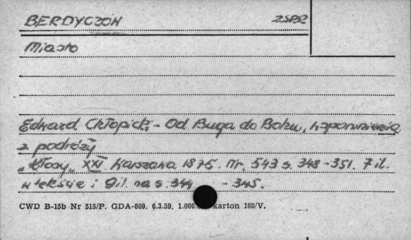 BERDYCZÓW ZSPŚZ
Miasto
Edward Chłopicki - Od Buga do Bohu, wspomnienia
z podróży
„Kłosy" XXI Warszawa 1875. nr. 543 s. 348-351. 7 il.
w tekście i 9 il. na s. 344 - 345.
CWD B-15b Nr 515/P. GDA-809. 6.3.59. 1.000 karton 180/V.